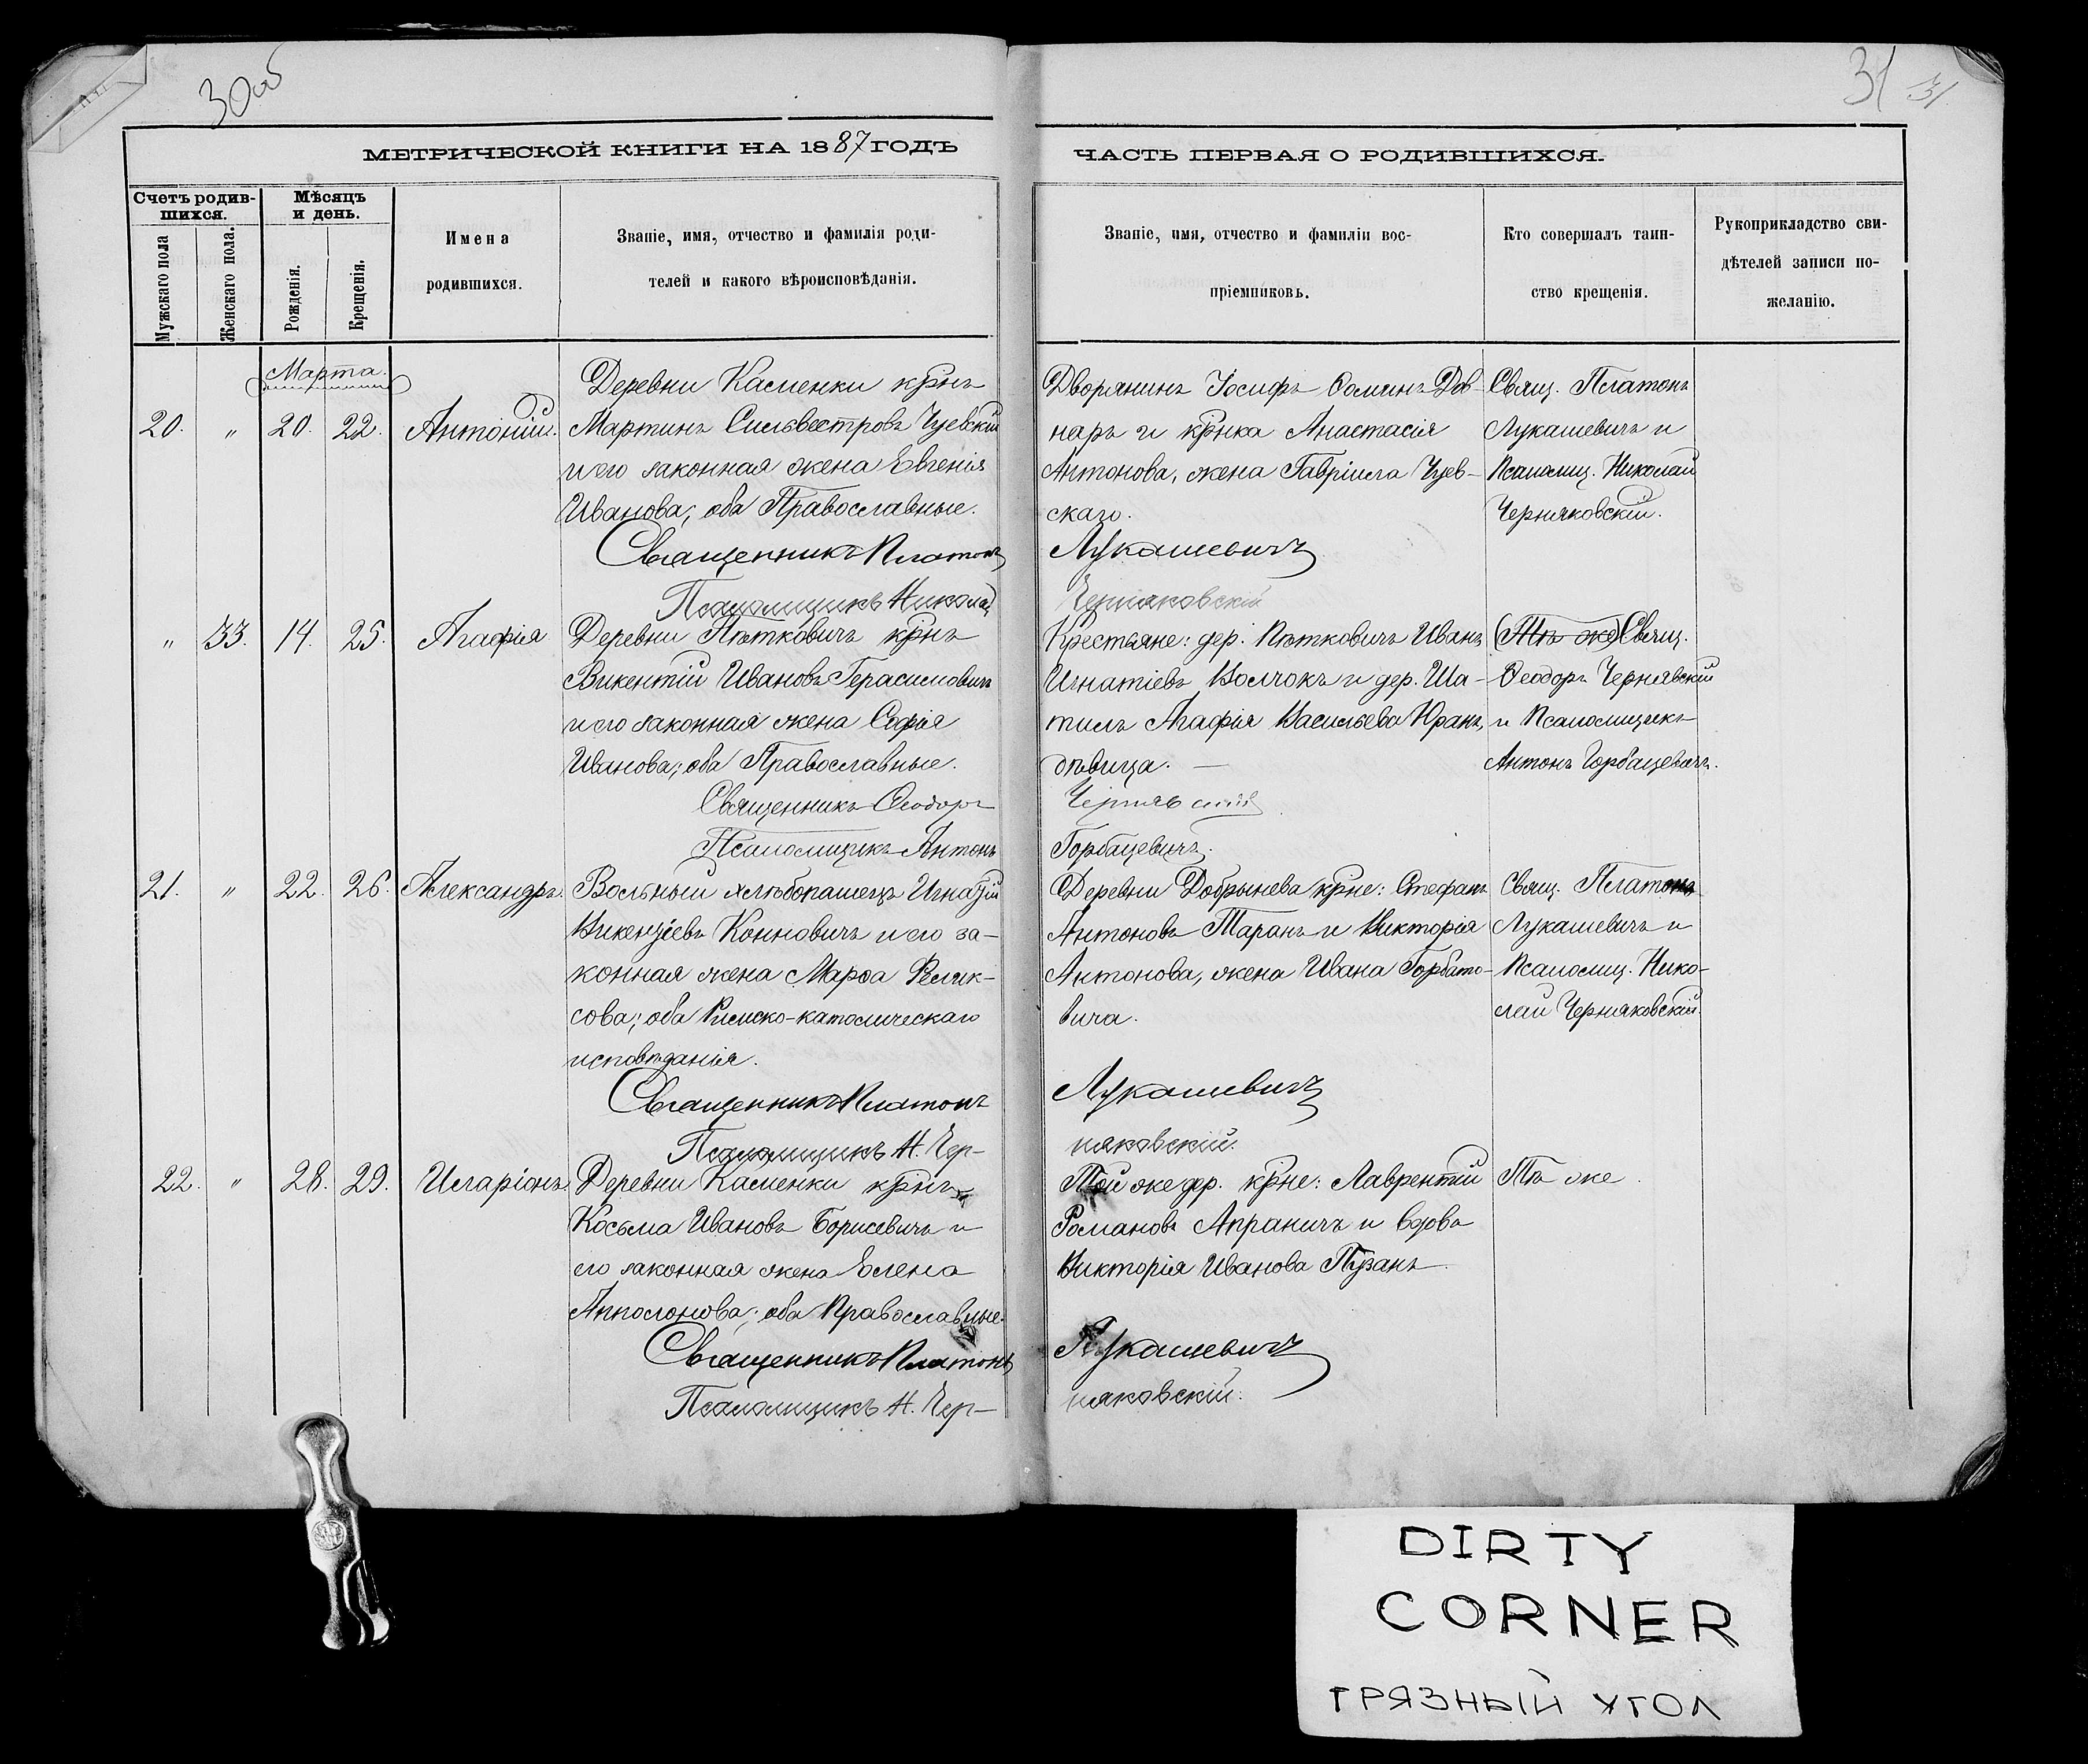 30 об
31
31
МЕТРИЧЕСКОЙ КНИГИ НА 1887 ГОДЪ
ЧАСТЬ ПЕРВАЯ О РОДИВШИХСЯ.
Счетъ родив-
шихся.
Мѣсяцъ
и день.
Мужскаго пола
Женскаго пола.
Рожденія.
Крещенія.
Имена
родившихся.
Званіе, имя, отчество и фамилія роди-
телей и какого вѣроисповѣданія.
Званіе, имя, отчество и фамиліи вос-
пріемниковъ.
Кто совершалъ таин-
ство крещенія.
Рукоприкладство сви-
дѣтелей записи по-
желанію.
Марта.
20. " 20. 22. Антоній.
Деревни Каменки кр̃нъ
Мартинъ Сильвестровъ Чуевскій
и его законная жена Евгенія
Иванова; оба Православные.
Священникъ Платонъ
Псаломщикъ Николай
Дворянинъ Іосифъ Ѳоминъ Дов-
наръ и кр̃нка Анастасія
Антонова, жена Гавріила Чуев-
скаго.
Лукашевичъ
Черняковскій
Свящ. Платонъ
Лукашевичъ и
Псаломщ. Николай
Черняковскій.
" 33. 14. 25. Агафія
Деревни Пѣтковичъ кр̃нъ
Викентій Ивановъ Герасимовичъ
и его законная жена Софія
Иванова; оба Православные.
Священникъ Ѳеодоръ
Псаломщикъ Антонъ
Крестьяне: дер. Пѣтковичъ Иванъ
Игнатіевъ Волчокъ и дер. Ша-
тилъ Агафія Васильева Юранъ,
дѣвица. —
Чернявскій
Горбацевичъ.
(Тѣ же) Свящ.
Ѳеодоръ Чернявскій
и Псаломщикъ
Антонъ Горбацевичъ.
21. " 22. 26. Александръ.
Вольный хлѣбопашецъ Игнатій
Викентіевъ Конновичъ и его за-
конная жена Марѳа Фелик-
сова; оба Римско-католическаго
исповѣданія.
Священникъ Платонъ
Псаломщикъ Н. Чер-
Деревни Добрынева кр̃не: Стефанъ
Антоновъ Таранъ и Викторія
Антонова, жена Ивана Горбато-
вича.
Лукашевичъ
няковскій.
Свящ. Платонъ
Лукашевичъ и
Псаломщ. Нико-
лай Черняковскій.
22. " 28. 29. Иларіонъ
Деревни Каменки кр̃нъ
Косьма Ивановъ Борисевичъ и
его законная жена Елена
Апполонова; оба Православные.
Священникъ Платонъ
Псаломщикъ Н. Чер-
Той же дер. кр̃не: Лаврентій
Романовъ Апраничъ и вдова
Викторія Иванова Пузанъ
Лукашевичъ
няковскій.
Тѣ же.
DIRTY
CORNER
ГРЯЗНЫЙ УГОЛ